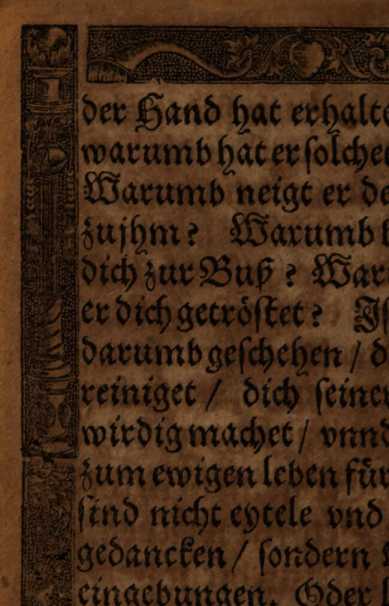 der Hand hat erhalte
warumb hat er solche
Warumb neigt er de
zujhm? Warumb
dich zur Buß? War
er dich getröstet?
darumb geschehen / d
reiniget / dich seine
wirdig machet / vnnd
zum ewigen leben für
sind nicht eytele vnd
gedancken / sondern
eingebungen. Oder